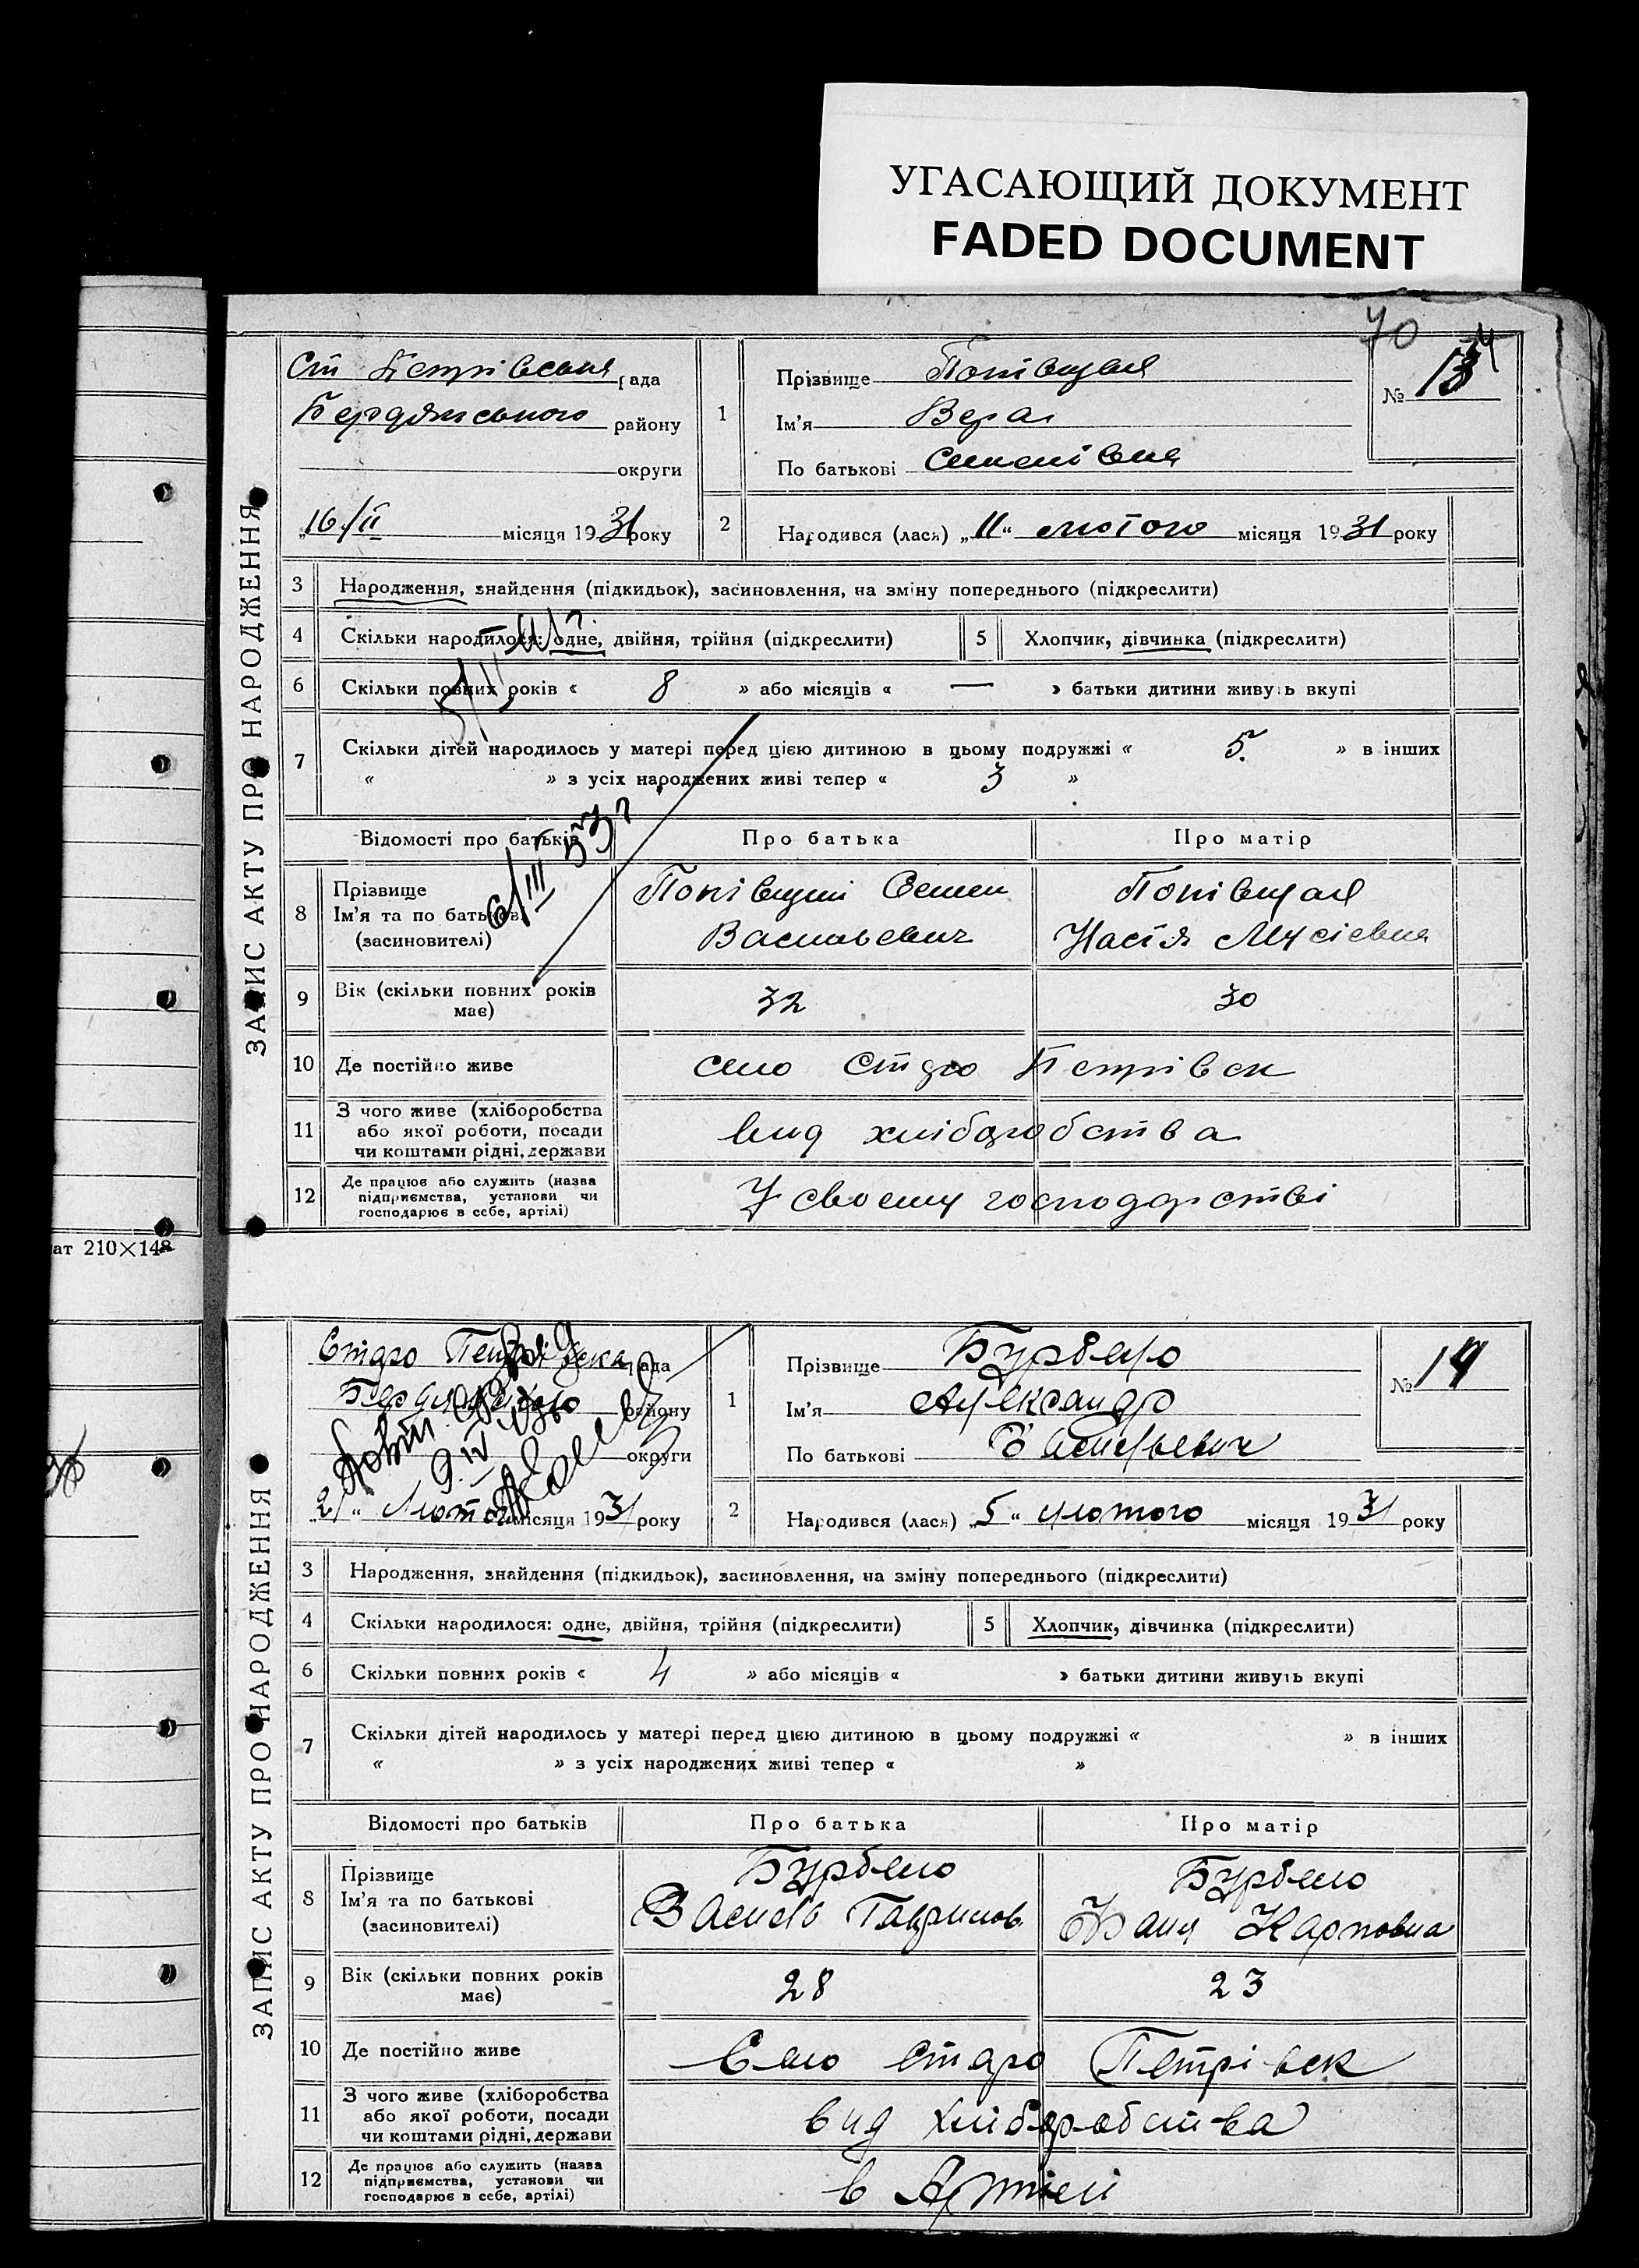 УГАСАЮЩИЙ ДОКУМЕНТ
FADED DOCUMENT
70
ат 210×148
ЗАПИС АКТУ ПРО НАРОДЖЕННЯ
Ст Петрівська рада
Бердянського району
округи
„16/II місяця 1931 року
1
Прізвище
Ім'я Вера
По батькові Семенівна
№ 13
2 Народився (лася) „11“ лютого місяця 1931 року
3 Народження, знайдення (підкидьок), засиновлення, на зміну попереднього (підкреслити)
4 Скільки народилося: одне, двійня, трійня (підкреслити) 5 Хлопчик, дівчинка (підкреслити)
6 Скільки повних років « 8 » або місяців « — » батьки дитини живуть вкупі
7 Скільки дітей народилось у матері перед цією дитиною в цьому подружжі « 5. » в інших
« » з усіх народжених живі тепер « 3 »
Відомості про батьків Про батька Про матір
6/III 33?
8 Прізвище
Ім'я та по батькові
(засиновителі)
Семен
Васильевич
Настя Мусіевна
9 Вік (скільки повних років має) 32 30
10 Де постійно живе село Старо Петрівск
11 З чого живе (хліборобства
або якої роботи, посади
чи коштами рідні, держави
вид хліборобства
12 Де працює або служить (назва
підприємства, установи чи
господарює в себе, артілі)
У своему господарстві
ЗАПИС АКТУ ПРО НАРОДЖЕННЯ
Старо Петрівска рада
Бердянского району
округи
„21“ Лютого місяця 1931 року
9.IV
1
Прізвище Бурбело
Ім'я Александр
По батькові Васильевич
№ 14
2 Народився (лася) „5“ лютого місяця 1931 року
3 Народження, знайдення (підкидьок), засиновлення, на зміну попереднього (підкреслити)
4 Скільки народилося: одне, двійня, трійня (підкреслити) 5 Хлопчик, дівчинка (підкреслити)
6 Скільки повних років « 4 » або місяців « » батьки дитини живуть вкупі
7 Скільки дітей народилось у матері перед цією дитиною в цьому подружжі « » в інших
« » з усіх народжених живі тепер « »
Відомості про батьків Про батька Про матір
8 Прізвище
Ім'я та по батькові
(засиновителі)
Бурбело
Василь Гаврилов.
Бурбело
Карповна
9 Вік (скільки повних років має) 28 23
10 Де постійно живе Село старо Петрівск
11 З чого живе (хліборобства
або якої роботи, посади
чи коштами рідні, держави
вид хліборобства
12 Де працює або служить (назва
підприємства, установи чи
господарює в себе, артілі)
в Артілі